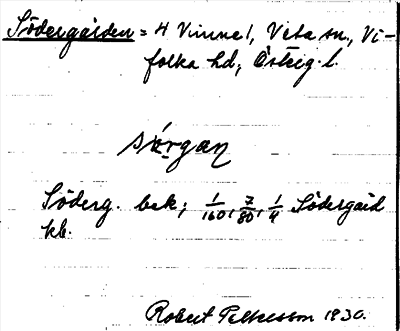 Södergården = 4 Vinnel, Veta sn., Vi-
folka hd, Östeg. l.
sǿrgan
Söderg. bek; 1/160, 7/80, 1/4 Södergård
kb.
Robert Pettersson 1930.